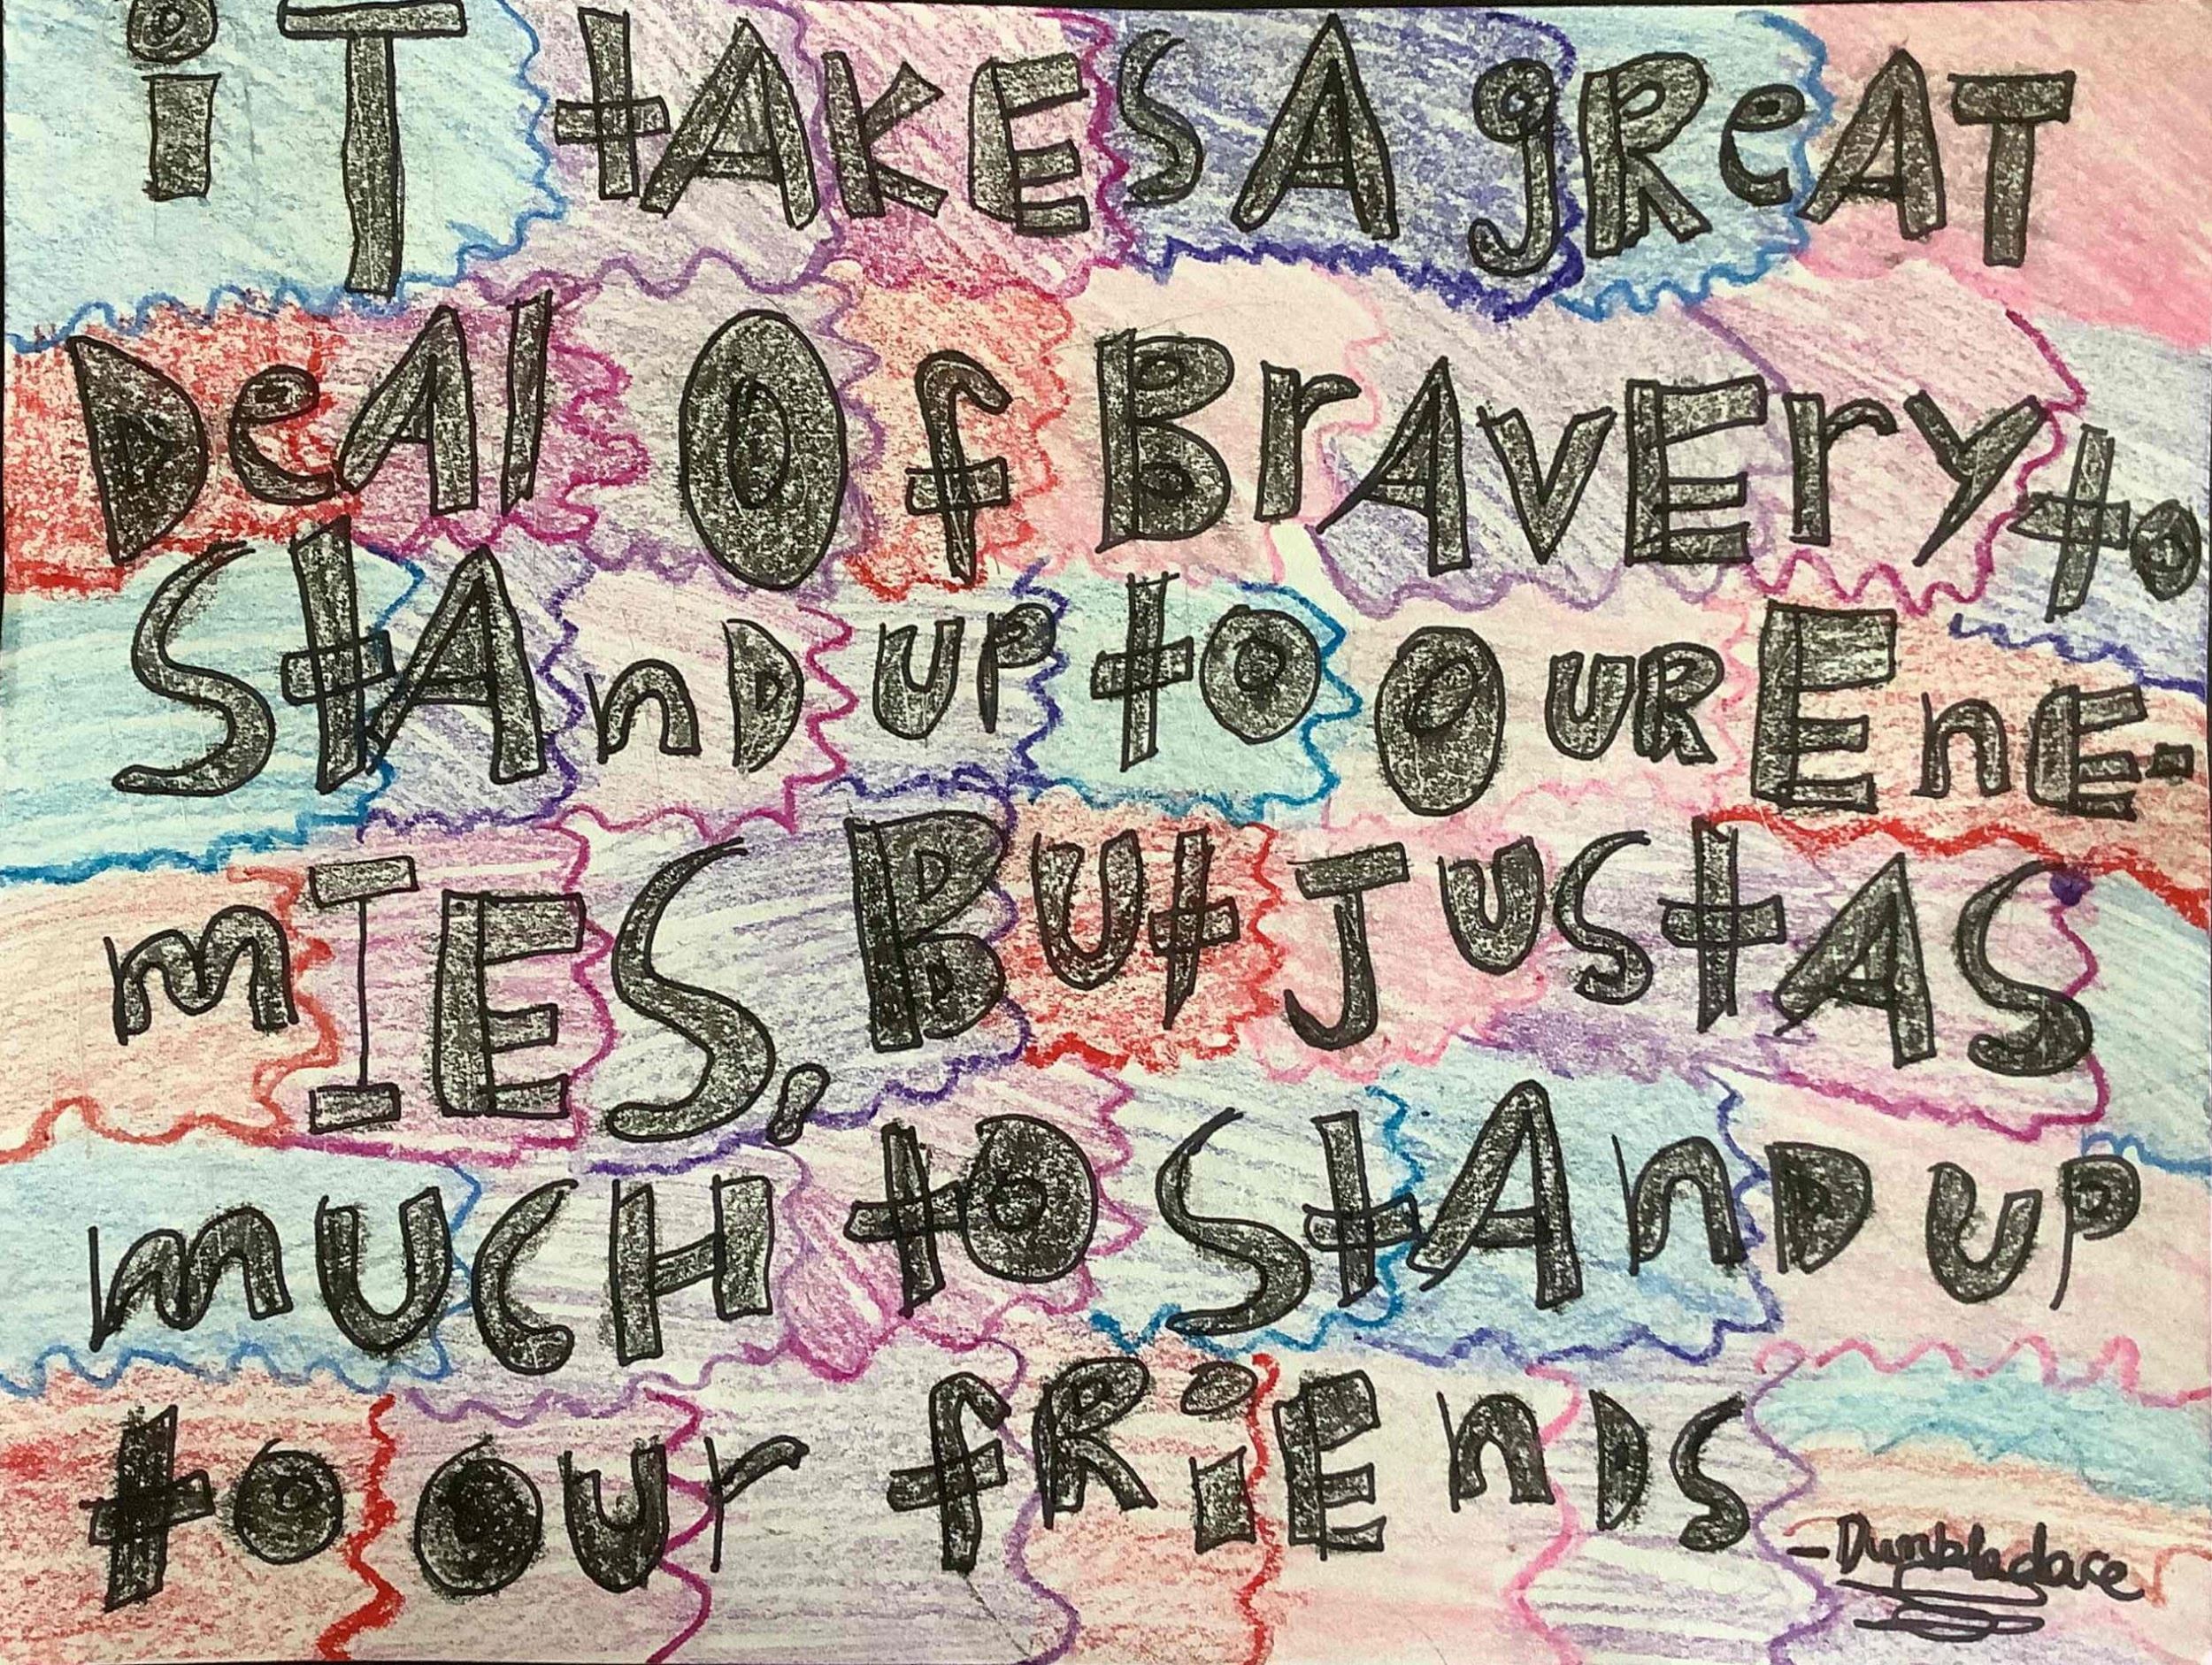 iT tAKES A gReAT
DeAl Of BrAvEry to
StAnD UP to OUR EnE-
mIES, BUt JUStAS
mUCH to StAnD UP
to our fRiEnDS
- Dumbledore